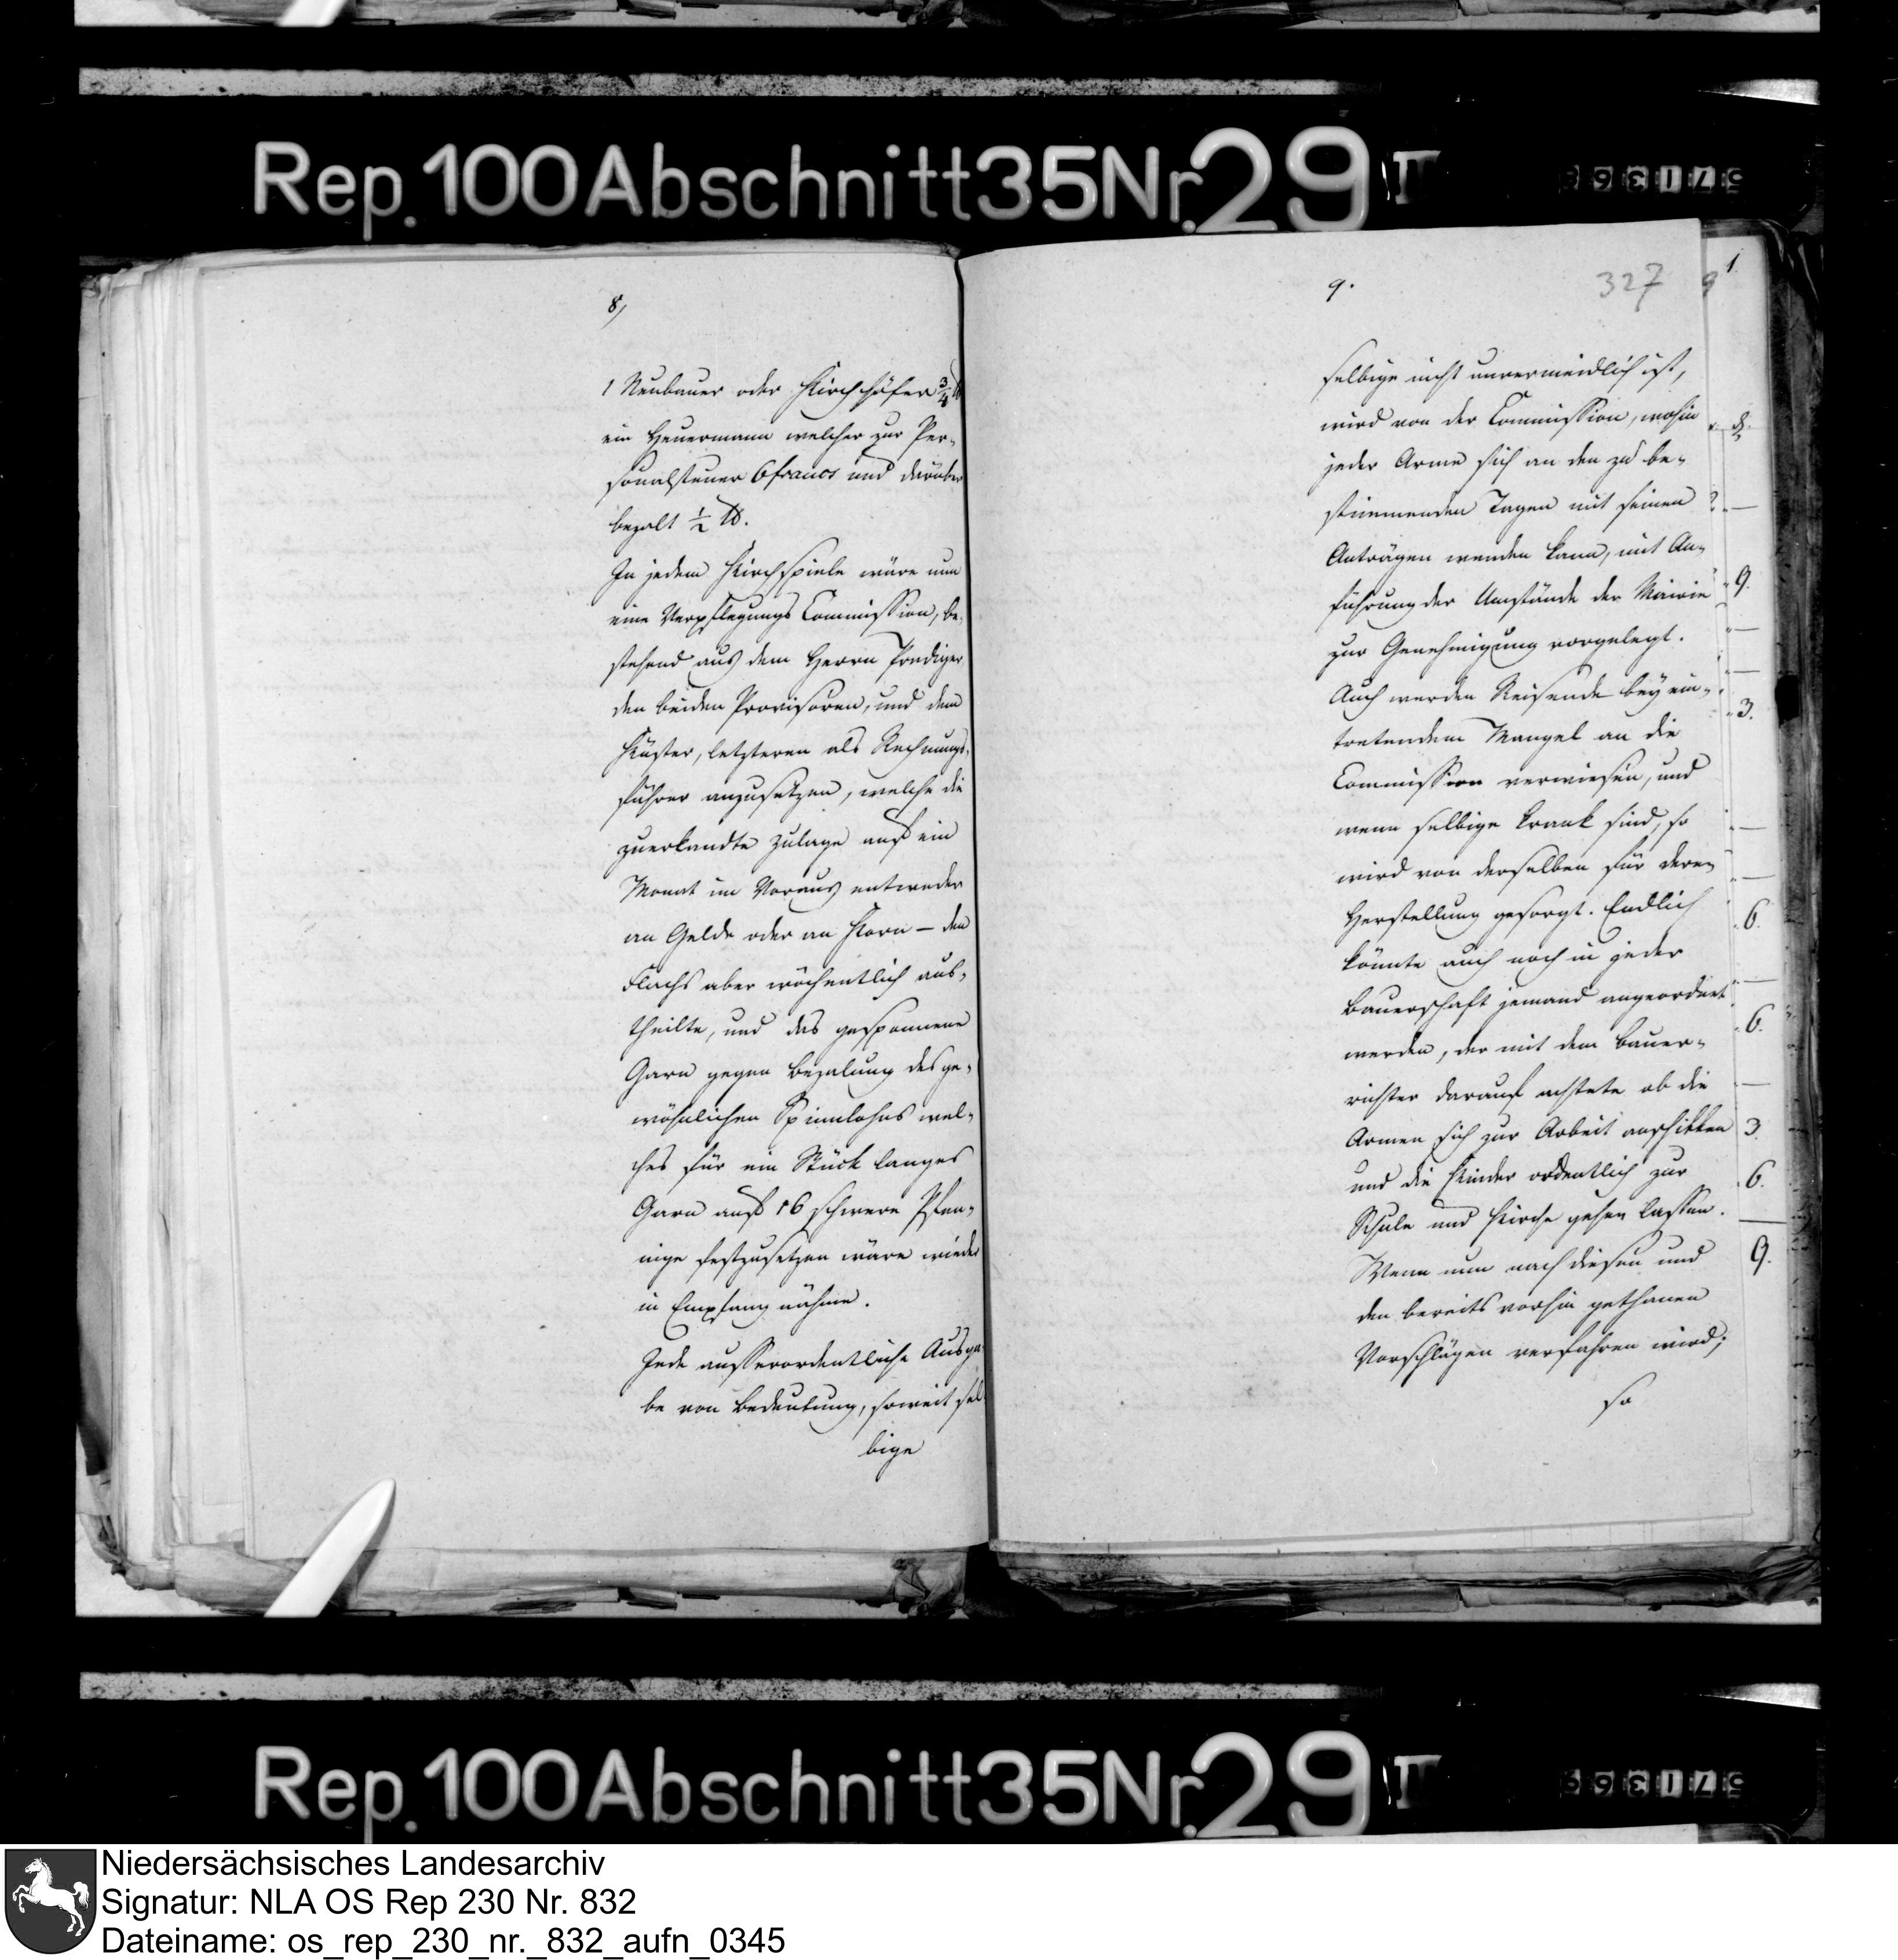 Rep. 100 Abschnitt 35 Nr. 29 II
571368
8,
1 Neubauer oder Kirchhöfer 3/4 ℔
ein Heuermann welcher zur Per-
sonalsteuer 6 francs und darüber
bezalt 1/2 ℔.
In jedem Kirchspiele wäre nun
eine Verpflegungs Commission, be-
stehend aus dem Herrn Prediger
den beiden Provisoren, und dem
Küster, letzteren als Rechnungs-
führer anzusetzen, welche die
zuerkandte Zulage auf ein
Monat im Voraus entweder
an Gelde oder an Korn – den
Flachs aber wöchentlich aus-
theilte, und das gesponnene
Garn gegen Bezalung des ge-
wöhnlichen Spinnlohns wel-
ches für ein Stück langes
Garn auf 16 schwere Pfen-
nige festzusetzen wäre wieder
in Empfang nähme.
Jede ausserordentliche Ausga-
be von Bedeutung, soweit sel-
bige
9.
327
9
1.
selbige nicht unvermeidlich ist,
wird von der Commission, wohin
jeder Arme sich an den zu be-
stimmenden Tagen mit seinen
Anträgen wenden kann, mit An-
führung der Umstände der Mairie
zur Genehmigung vorgelegt.
Auch werden Reisende bey ein-
tretendem Mangel an die
Commission verwiesen, und
wenn selbige krank sind, so
wird von derselben für deren
Herstellung gesorgt. Endlich
könnte auch noch in jeder
Bauerschaft jemand angeordnet
werden, der mit dem Bauer-
richter darauf achtete ob die
Armen sich zur Arbeit anschikken
und die Kinder ordentlich zur
Schule und Kirche gehen lassen.
Wenn nun nach diesen und
den bereits vorhin gethanen
Vorschlägen verfahren wird;
so
9.
3.
6.
6.
3.
6.
9.
Rep. 100 Abschnitt 35 Nr. 29 II
571369
Niedersächsisches Landesarchiv
Signatur: NLA OS Rep 230 Nr. 832
Dateiname: os_rep_230_nr._832_aufn_0345